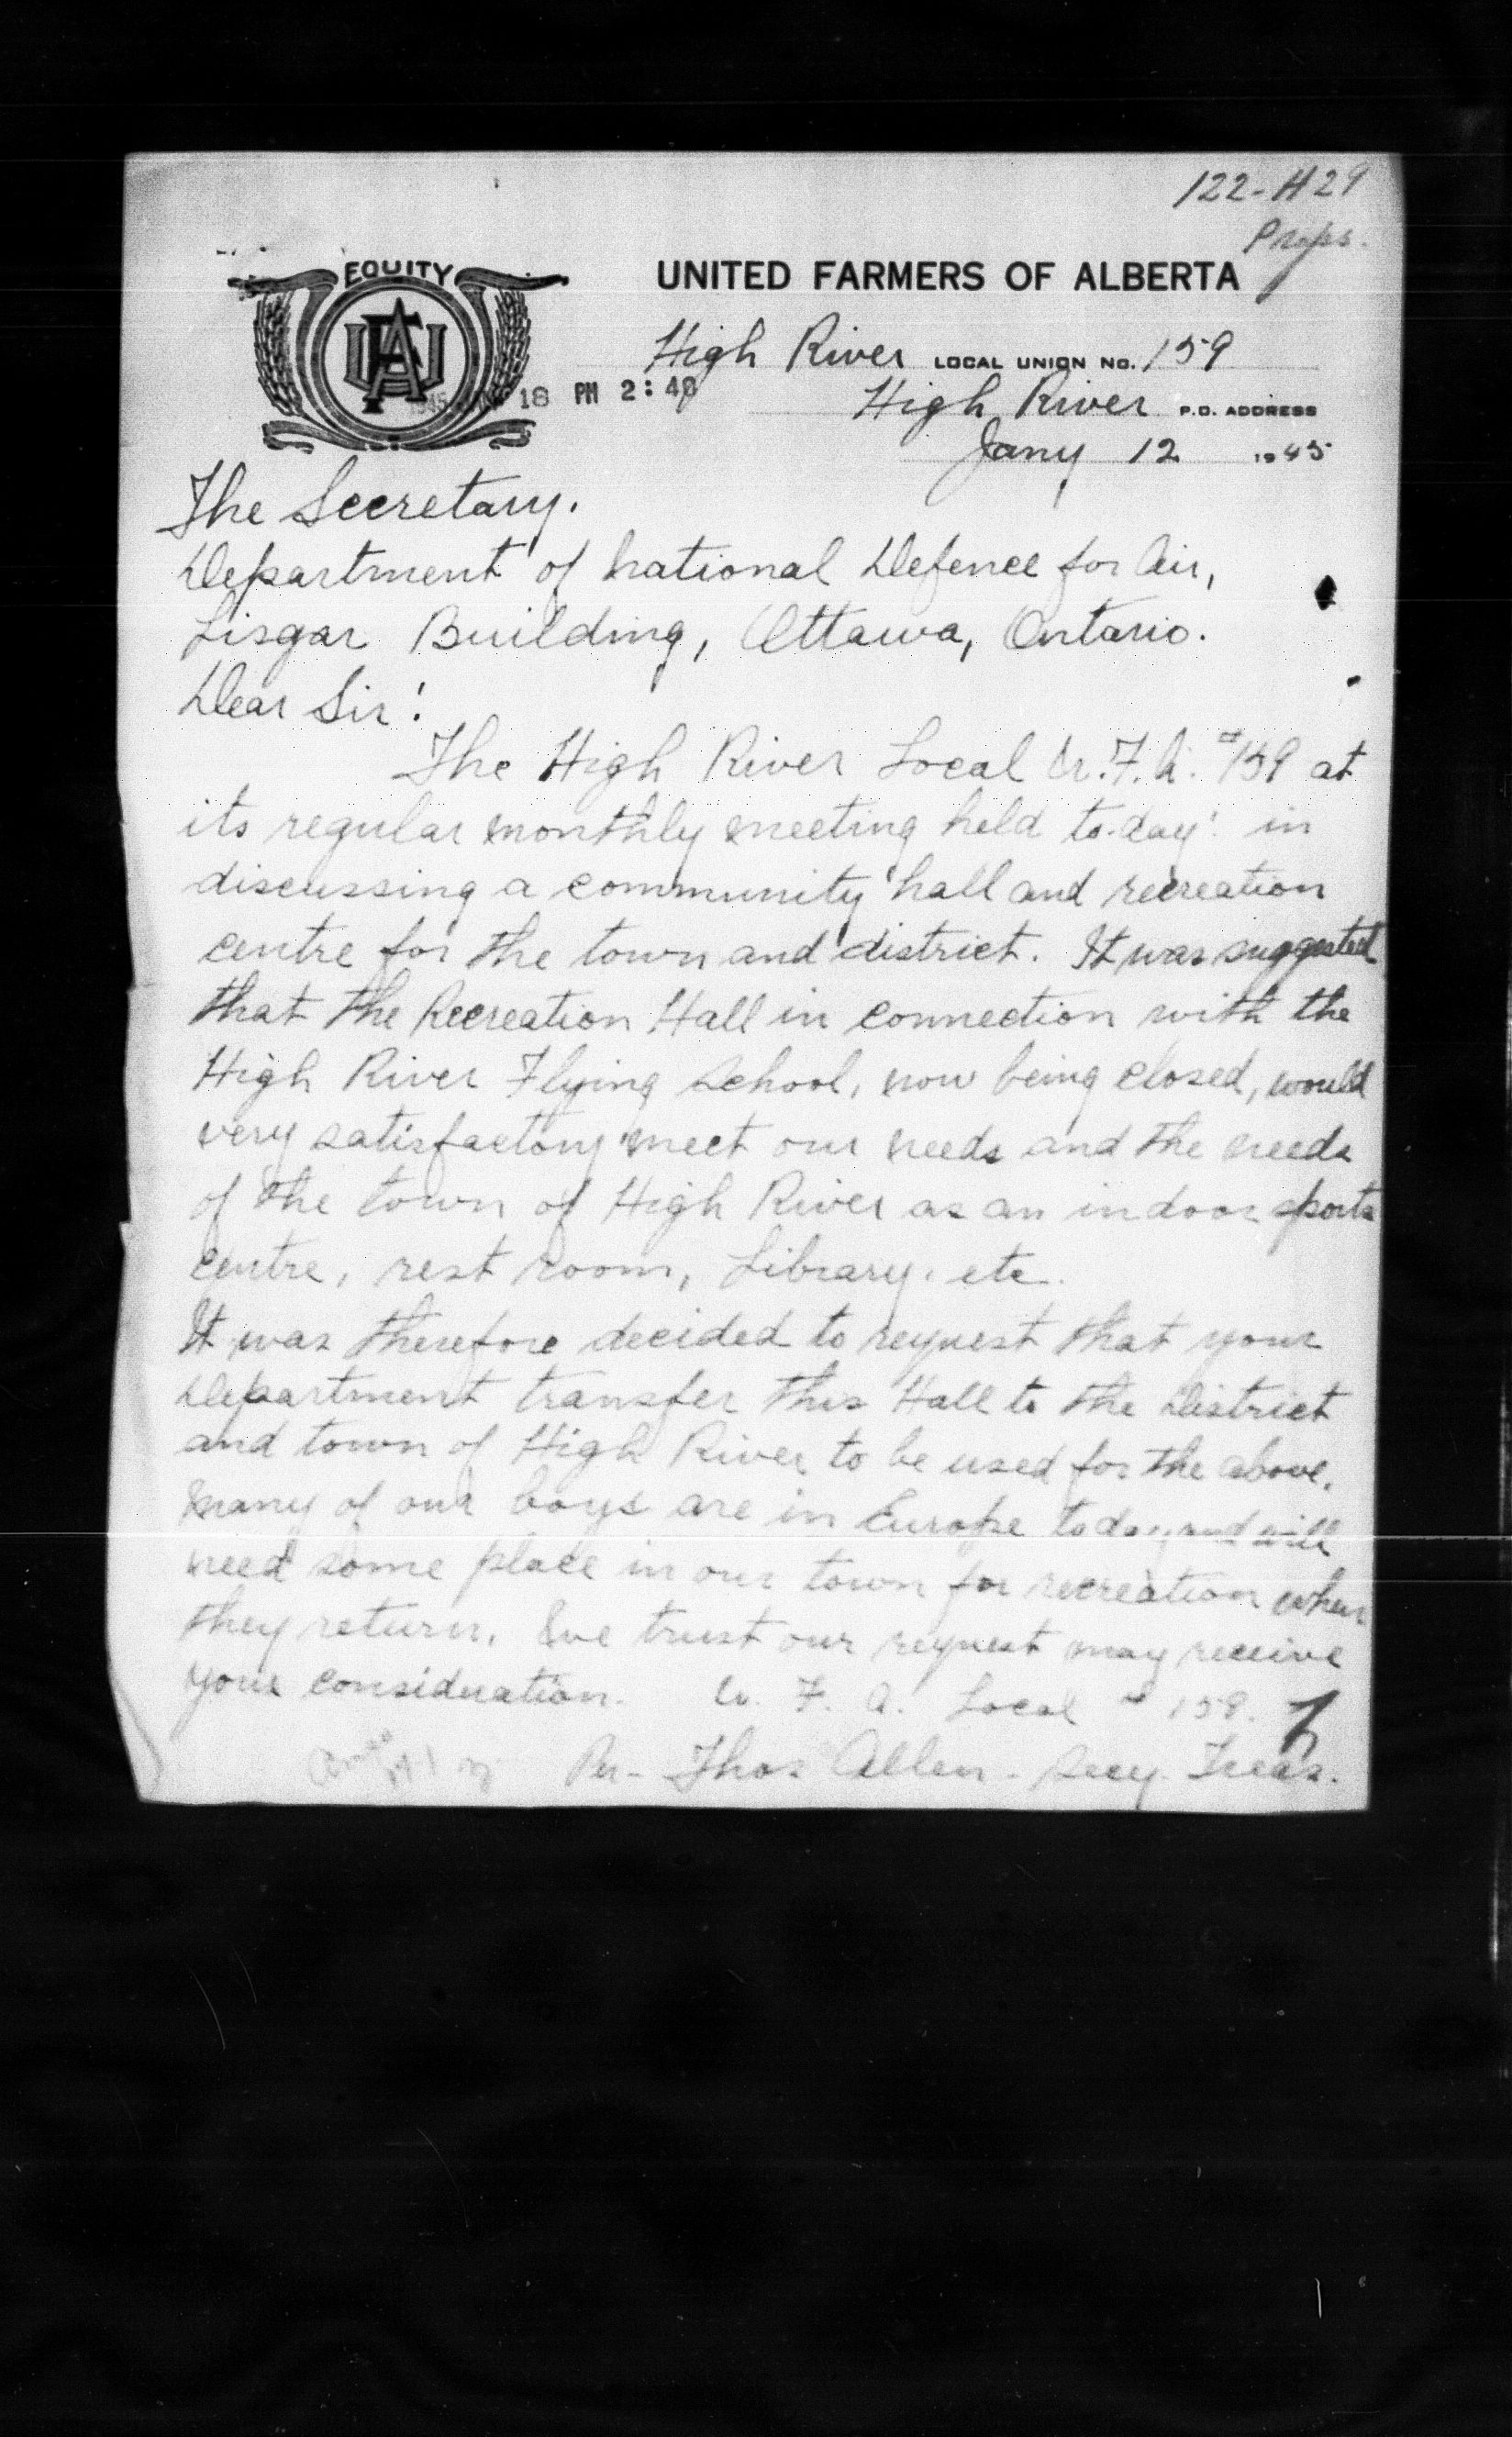 122-H29
Props.
EQUITY
UFA
UNITED FARMERS OF ALBERTA
High River LOCAL UNION No. 159
1945 JAN 18 PM 2:48
High River P.O. ADDRESS
Jany 12 1945
The Secretary.
Department of National Defence for Air,
Lisgar Building, Ottawa, Ontario.
Dear Sir:
The High River Local U.F.A. #159 at
its regular monthly meeting held to-day: in
discussing a community hall and recreation
centre for the town and district. It was suggested
that the Recreation Hall in connection with the
High River Flying School, now being closed, would
very satisfactory meet our needs and the needs
of the town of High River as an indoor sports
centre, rest room, Library, etc.
It was therefore decided to request that your
Department transfer this Hall to the District
and town of High River to be used for the above.
Many of our boys are in Europe today and will
need some place in our town for recreation when
they return. We trust our request may receive
your consideration. U. F. A. Local # 159.
Per- Thos Allen - Secy. Treas.